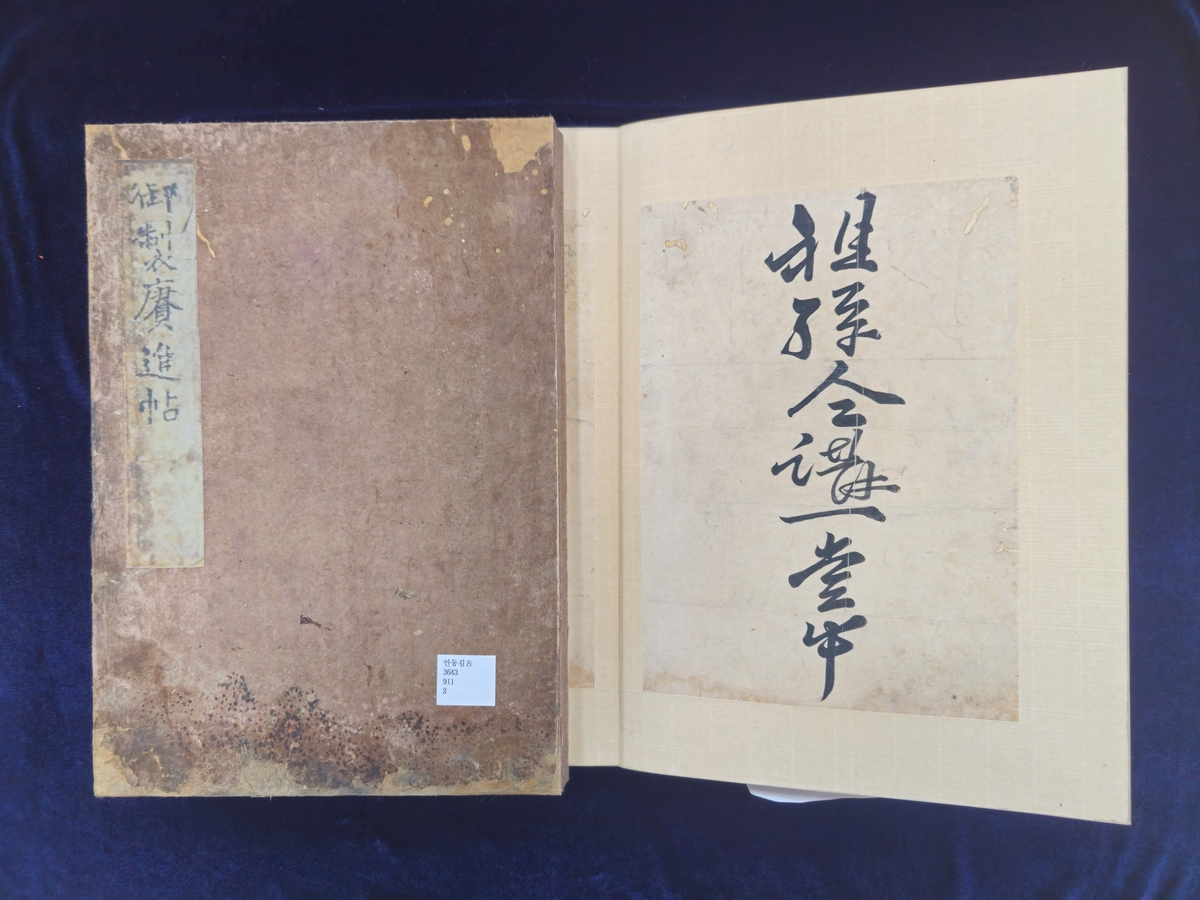 御製賡進帖
안동김古
3643
911
2
稚孫今講一堂中